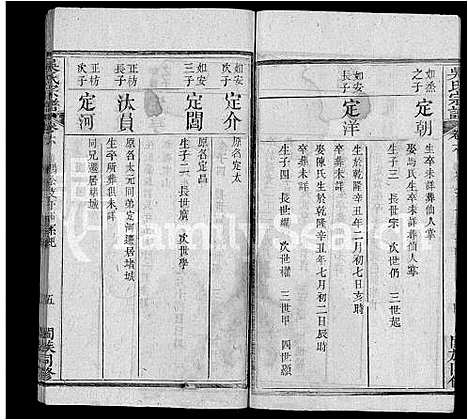 吳氏宗譜
如丞之子
定朝
生卒未詳葬仙人掌
娶馮氏生卒未詳葬仙人掌
生子三 長世宗 次世仍 三世起
如安長子
定洋
生於乾隆辛丑年二月初七日亥時
卒葬未詳
娶陳氏生於乾隆辛丑年七月初二日辰時
卒葬未詳
生子四 長世禮 次世權 三世甲 四世顯
如安次子
定介
原名定太
如安三子
定閣
原名定昌
生子二 長世廣 次世學
正枋長子
汰員
原名太元同弟定河遷居堵城
生卒所葬俱未詳
正枋次子
定河
同兄遷居堵城
吳氏宗譜
卷六
五
閤族同修
FamilySearch